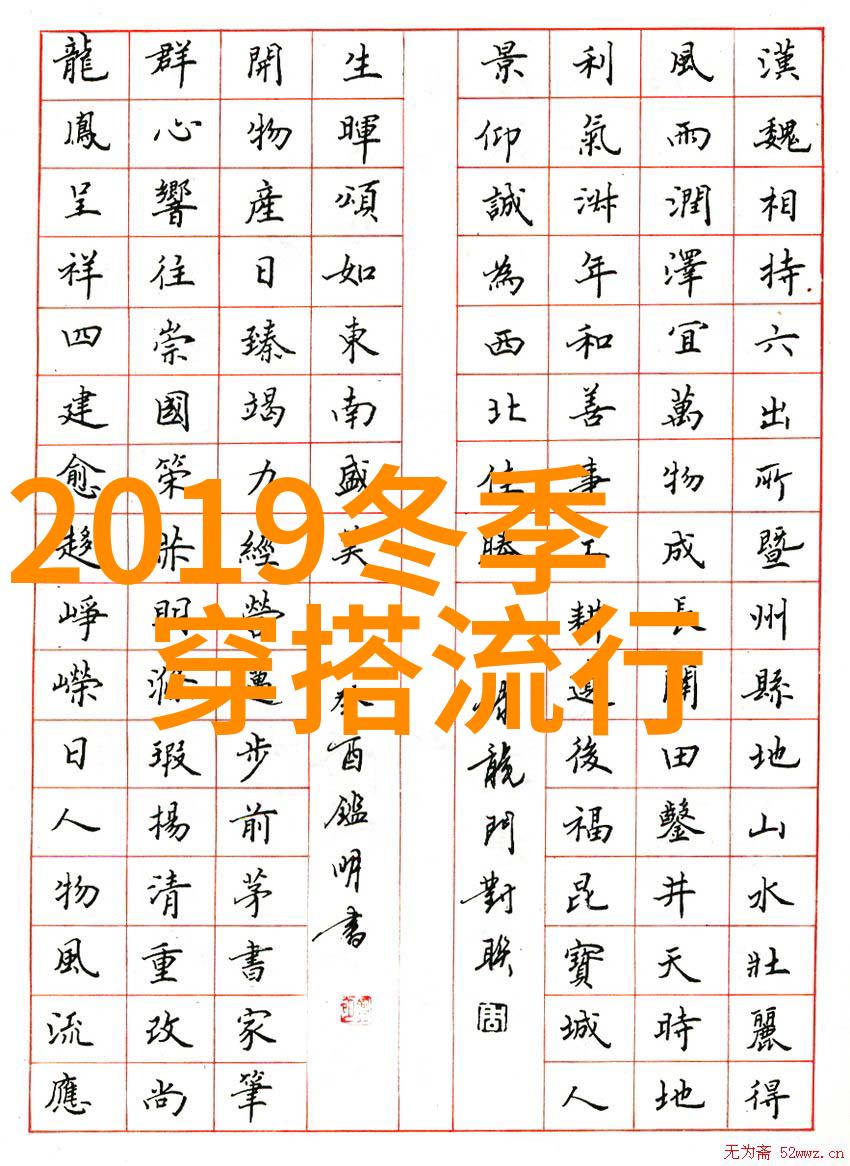 2019冬季
穿搭流行
漢魏相持六出所暨州縣地山水壯麗得
風雨潤澤宜萬物成長田鑿井天時地
利氣淑年和善事工耕後福昆寶城人
景仰誠為西北佳勝
龍門對聯
生暉頌如東南盛美
癸酉鑑明書
開物產日臻竭力經營邁步前茅書家筆
群心響往崇國榮明瑕揚清重改尚
龍鳳呈祥四建愈趨崢嶸日人物風流應
无为斋 52wwz.cn